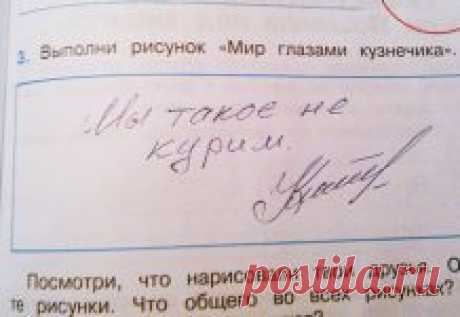 3. Выполни рисунок «Мир глазами кузнечика».
Мы такое не
курим.
Посмотри, что нарисовали твои друзья. О
те рисунки. Что общего во всех рисунках?
postila.ru